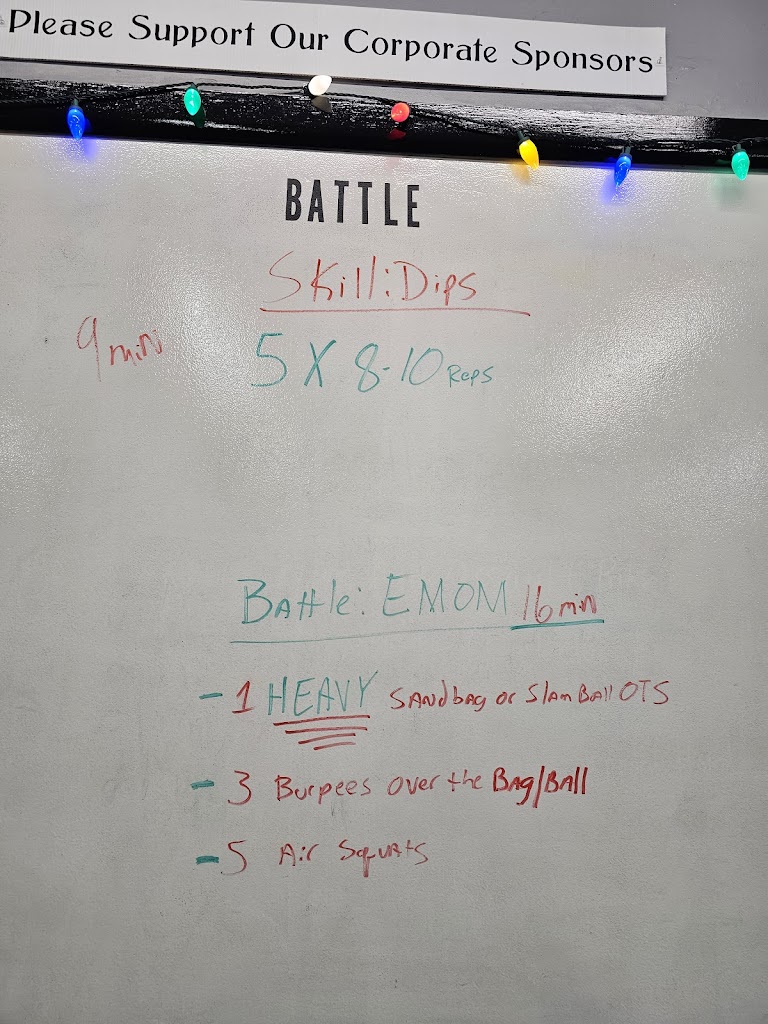 Please Support Our Corporate Sponsors
BATTLE
Skill: Dips
9 min
5 X 8-10 Reps
Battle: EMOM 16 min
- 1 HEAVY SANDbag or Slam Ball OTS
- 3 Burpees over the Bag/Ball
- 5 Air Squats